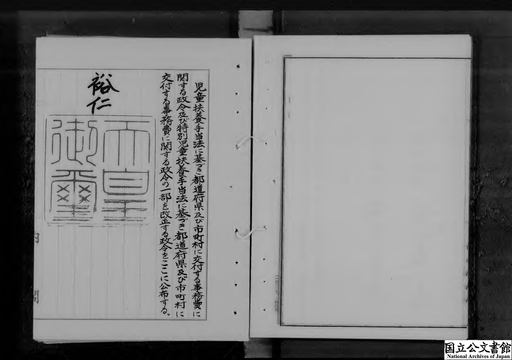 児童扶養手当法に基づき都道府県及び市町村に交付する事務費に
関する政令及び特別児童扶養手当法に基づき都道府県及び市町村に
交付する事務費に関する政令の一部を改正する政令をここに公布する。
裕仁
天皇
御璽
内
閣
国立公文書館
National Archives of Japan